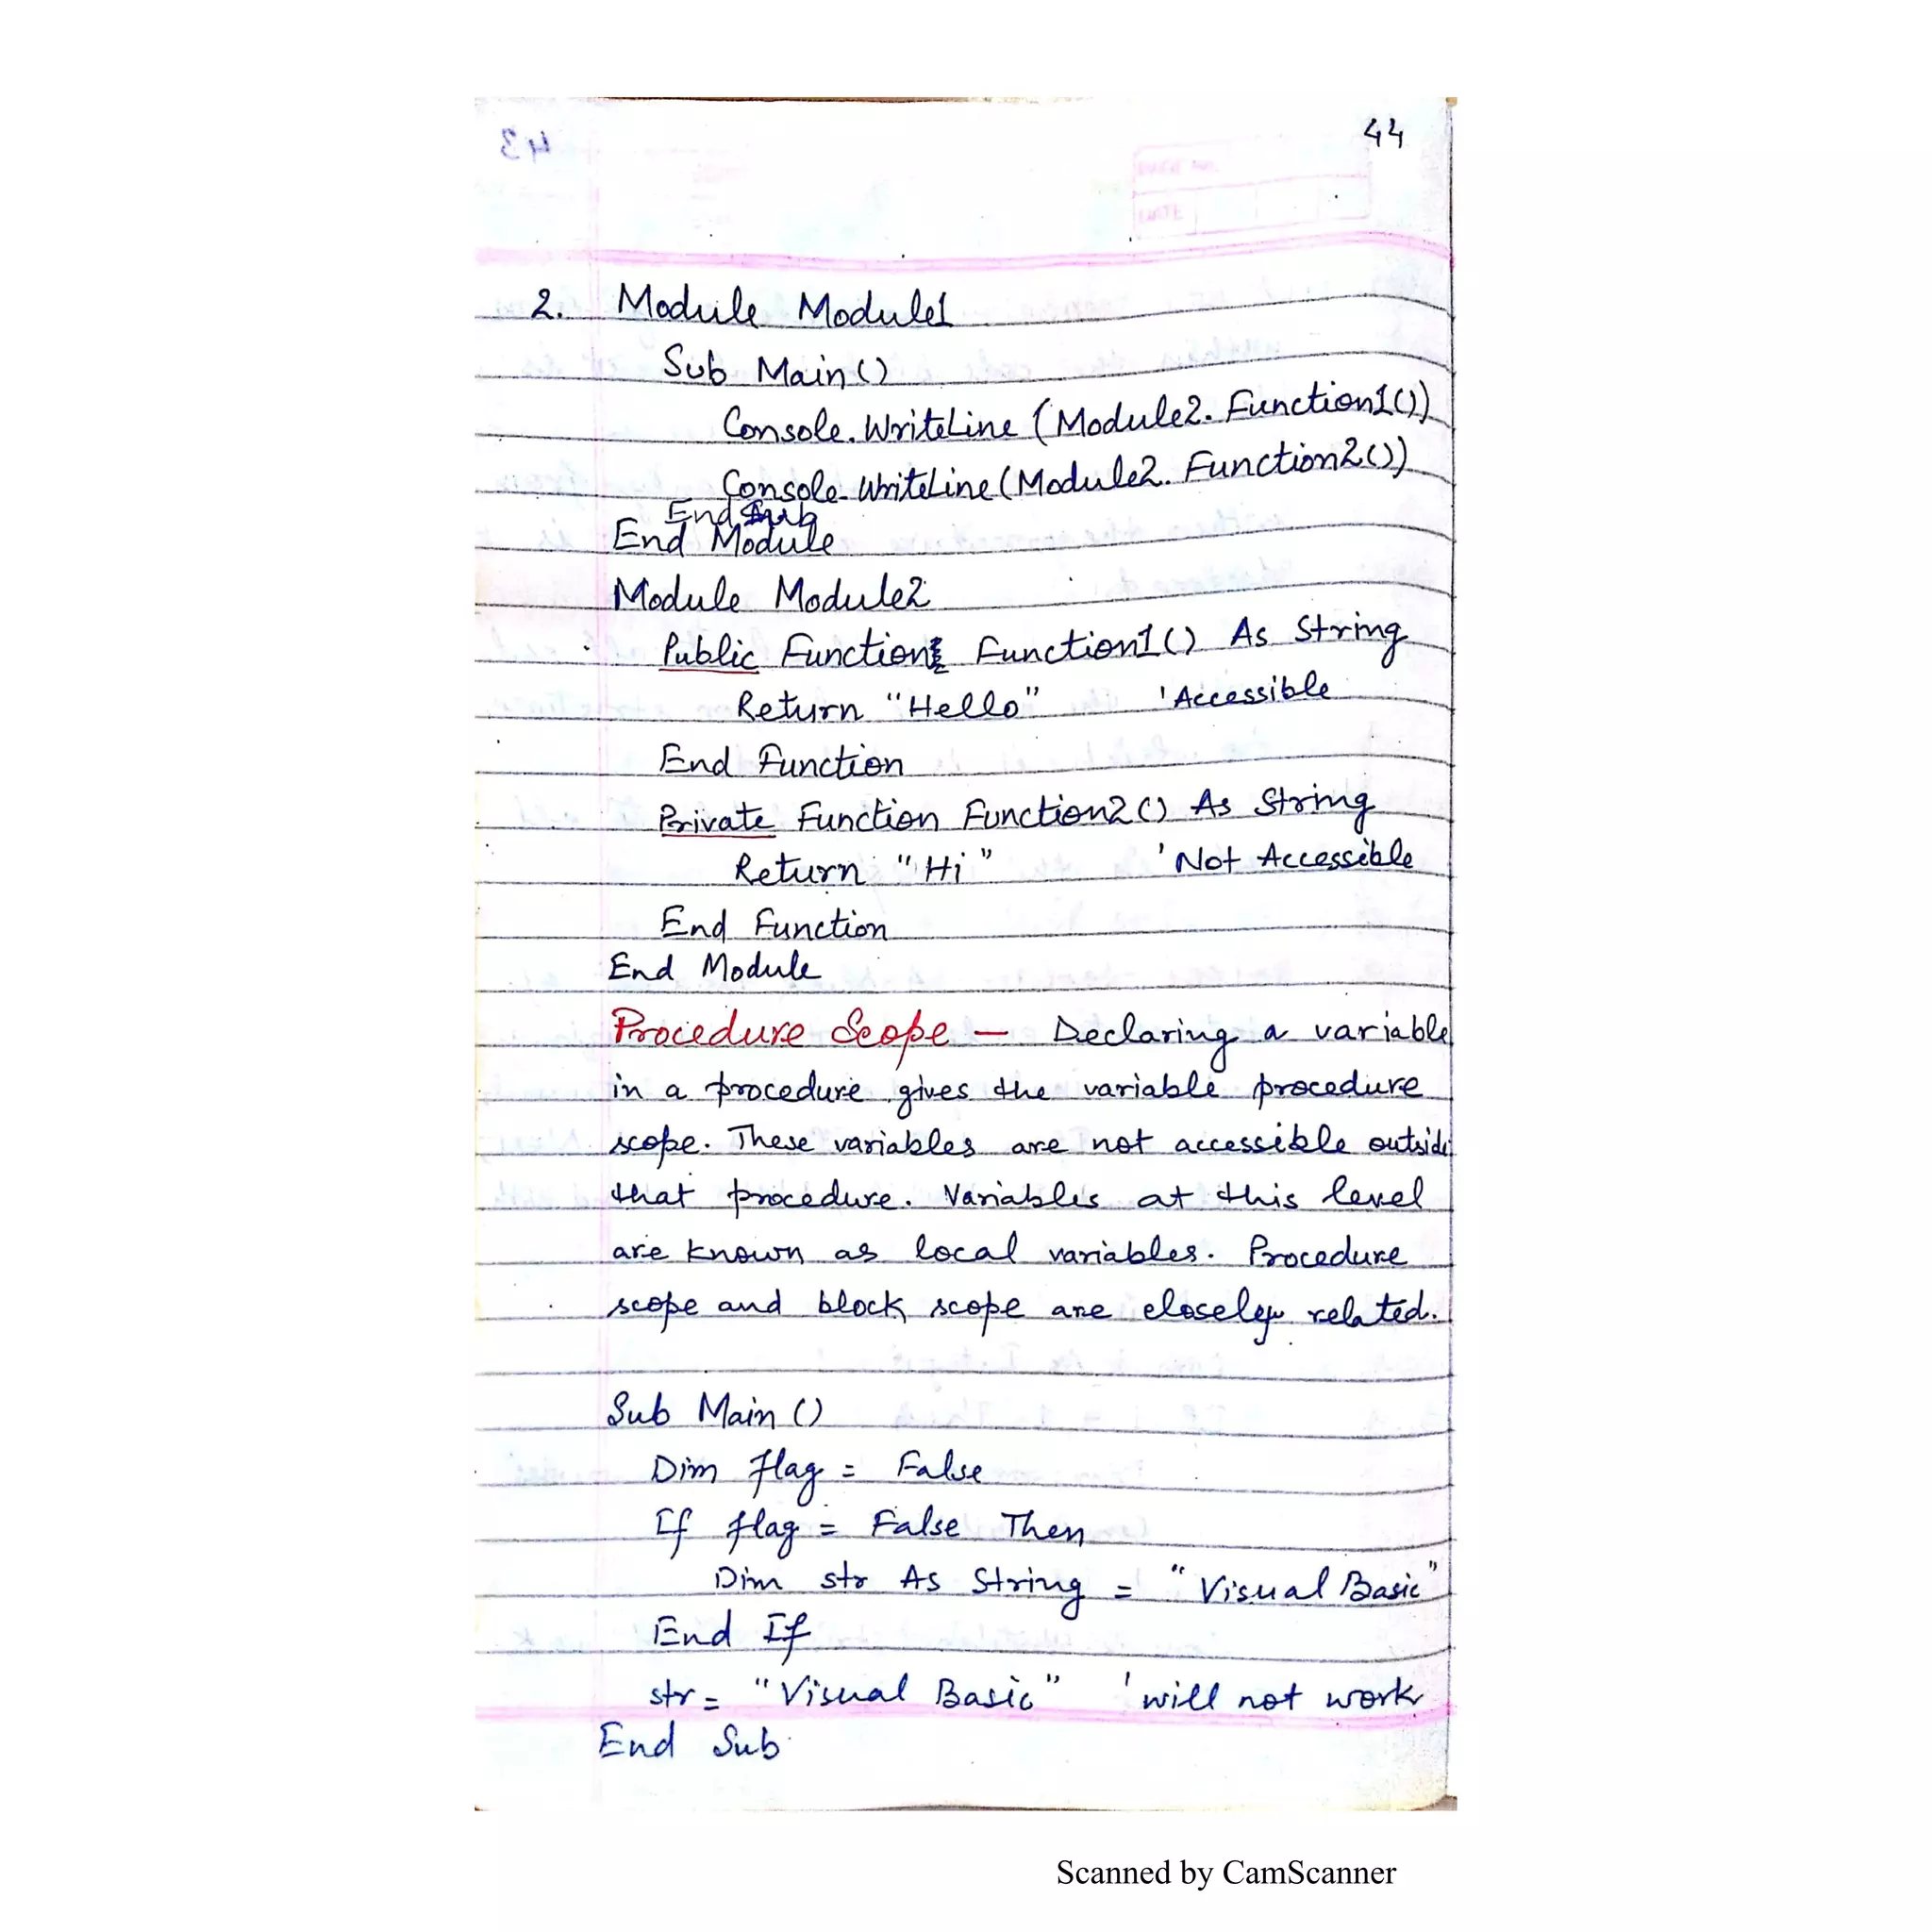 43
44
2. Module Module1
Sub Main()
Console.WriteLine (Module2.Function1())
Console.WriteLine (Module2.Function2())
End Sub
End Module
Module Module2
Public Function Function1() As String
Return "Hello" 'Accessible
End Function
Private Function Function2() As String
Return "Hi" 'Not Accessible
End Function
End Module
Procedure Scope — Declaring a variable
in a procedure gives the variable procedure
scope. These variables are not accessible outside
that procedure. Variables at this level
are known as local variables. Procedure
scope and block scope are closely related.
Sub Main ()
Dim flag = False
If flag = False Then
Dim str As String = "Visual Basic"
End If
str = "Visual Basic" 'will not work
End Sub
Scanned by CamScanner